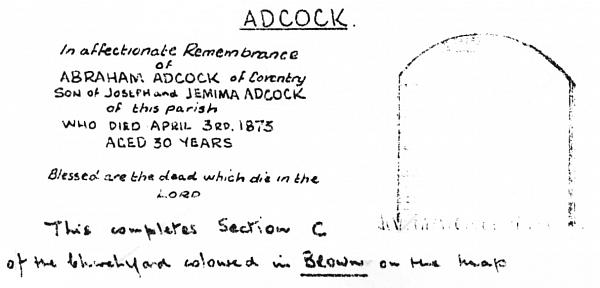 ADCOCK.
In affectionate Remembrance
of
ABRAHAM ADCOCK of Coventry
SON of JOSEPH and JEMIMA ADCOCK
of this parish
WHO DIED APRIL 3RD. 1873
AGED 30 YEARS
Blessed are the dead which die in the
LORD
This completes Section C
of the Churchyard coloured in Brown on the map